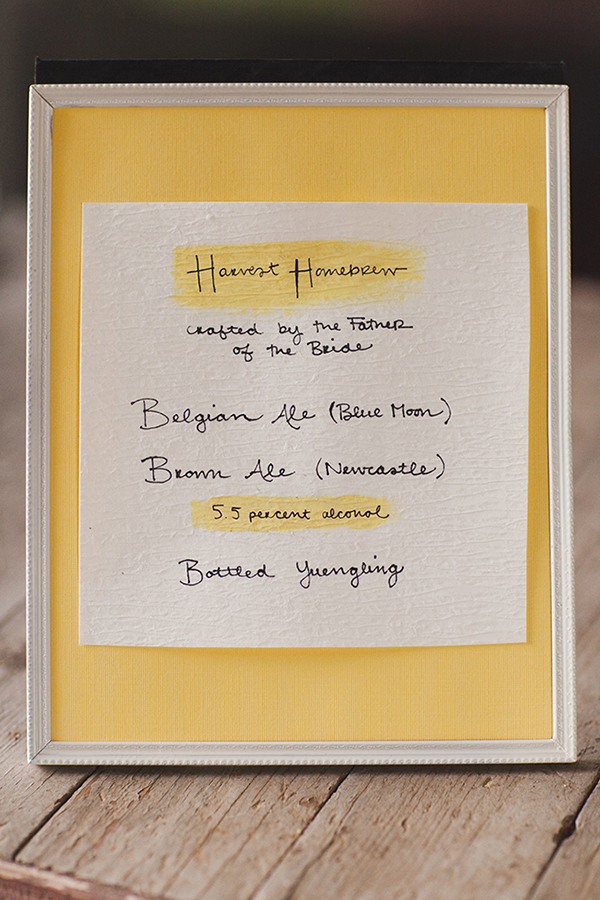 Harvest Homebrew
crafted by the Father
of the Bride
Belgian Ale (Blue Moon)
Brown Ale (Newcastle)
5.5 percent alcohol
Bottled Yuengling